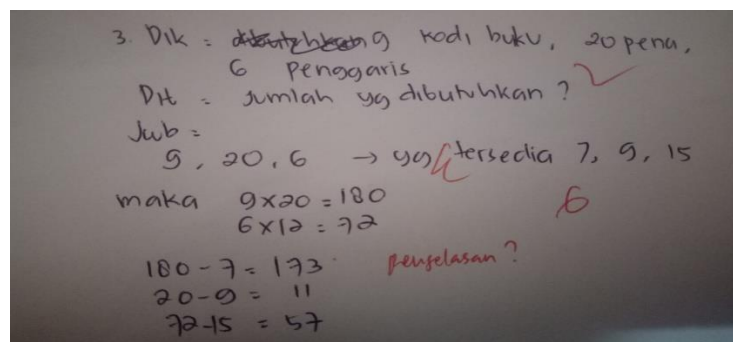 3. Dik = 9 kodi buku, 20 pena,
6 Penggaris
Dit = Jumlah yg dibutuhkan?
Jwb =
9, 20, 6 → yg tersedia 7, 9, 15
maka 9x20 = 180
6x12 = 72
6
180-7 = 173
penjelasan?
20-9 = 11
72-15 = 57